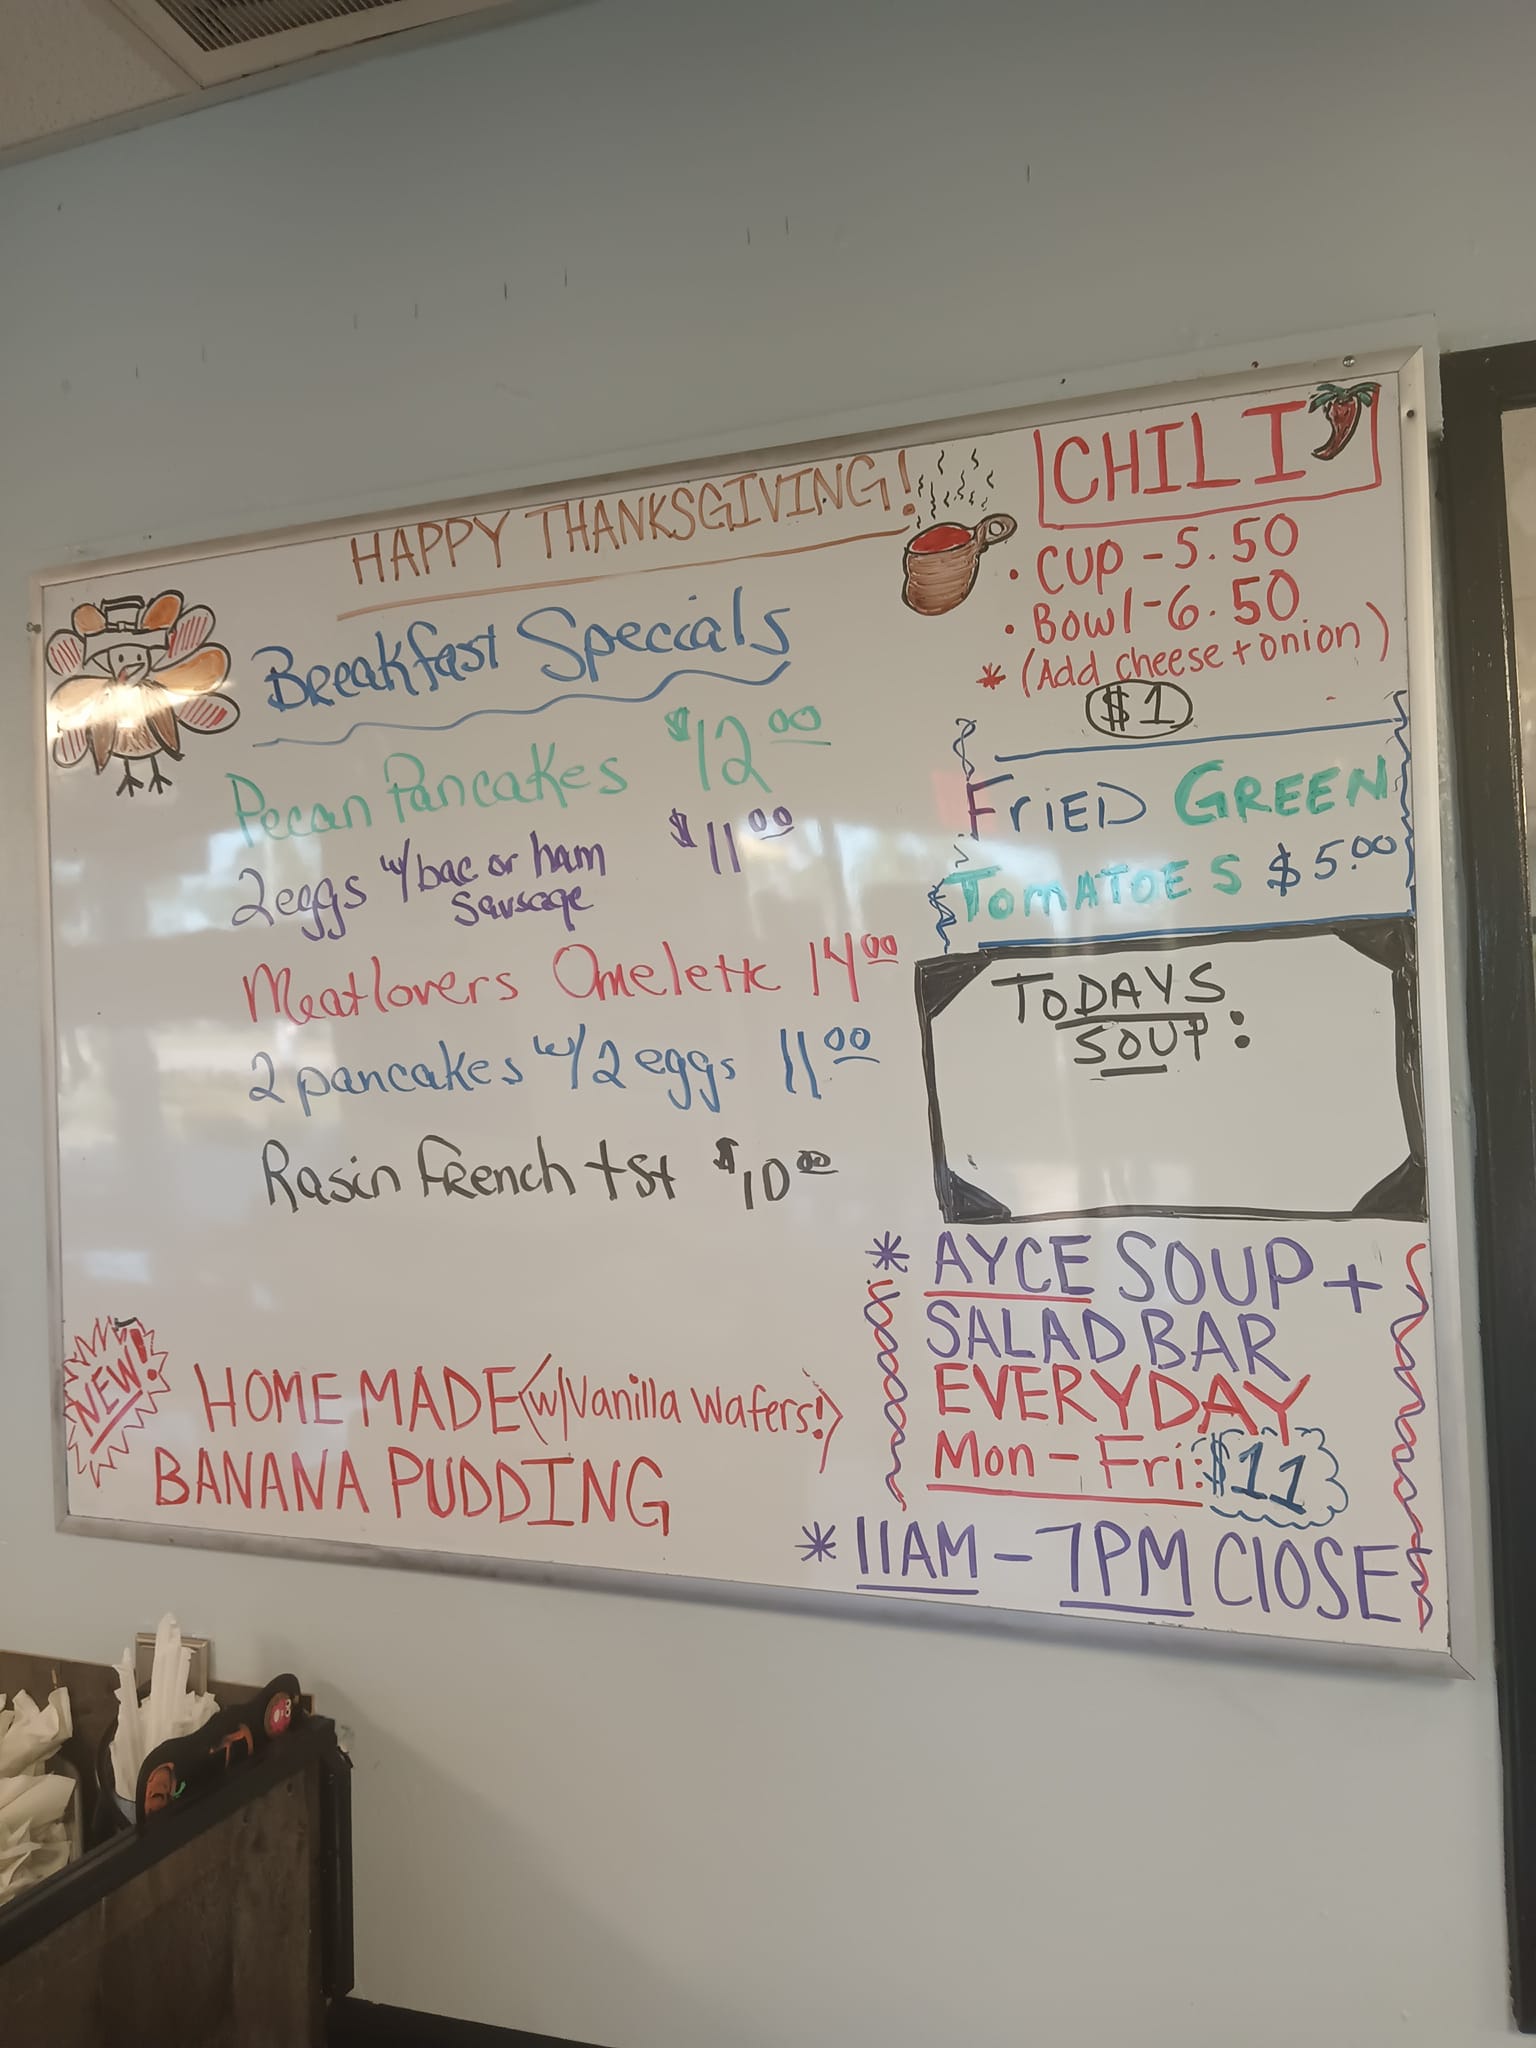 HAPPY THANKSGIVING!
Breakfast Specials
Pecan Pancakes $12 00
2 eggs w/ bac or ham $11 00
sausage
Meatlovers Omelette 14 00
2 pancakes w/ 2 eggs 11 00
Rasin French tst $10 00
NEW!
HOMEMADE (w/ Vanilla Wafers!)
BANANA PUDDING
CHILI
• CUP - 5.50
• Bowl - 6.50
* (Add cheese + onion)
$1
FRiED GREEN
TOMATOES $5.00
TODAYS
SOUP:
* AYCE SOUP +
SALAD BAR
EVERYDAY
Mon - Fri: $11
* 11AM - 7PM ClOSE